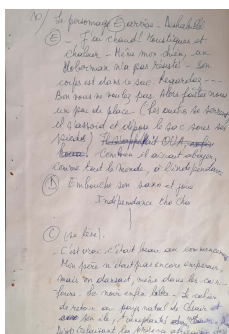 Le personnage Ouroise - Deshabillé
(E) J'ai chaud! Moustiques et
chaleur - Même mon chien, un
doberman n'a pas résisté - Son
corps est dans ce sac Regardez---
Bon vous ne voulez pas Alors faites nous
une peu de place - (Les autres se serrent
il s'assoit et depose le sac sous ses
pieds)
Comben il aimait aboyer,
comme tout le monde, à l'indépendance
(A) Embouche son saxo et joue
Indépendance cha cha
(C) (se lève).
- C'est vrai c'était beau au commencement
Mon père n'était pas encore empereur,
mais on dansait, même dans les
- Je nous enfin. Le cahier
de retour au pays natal de Césaire et